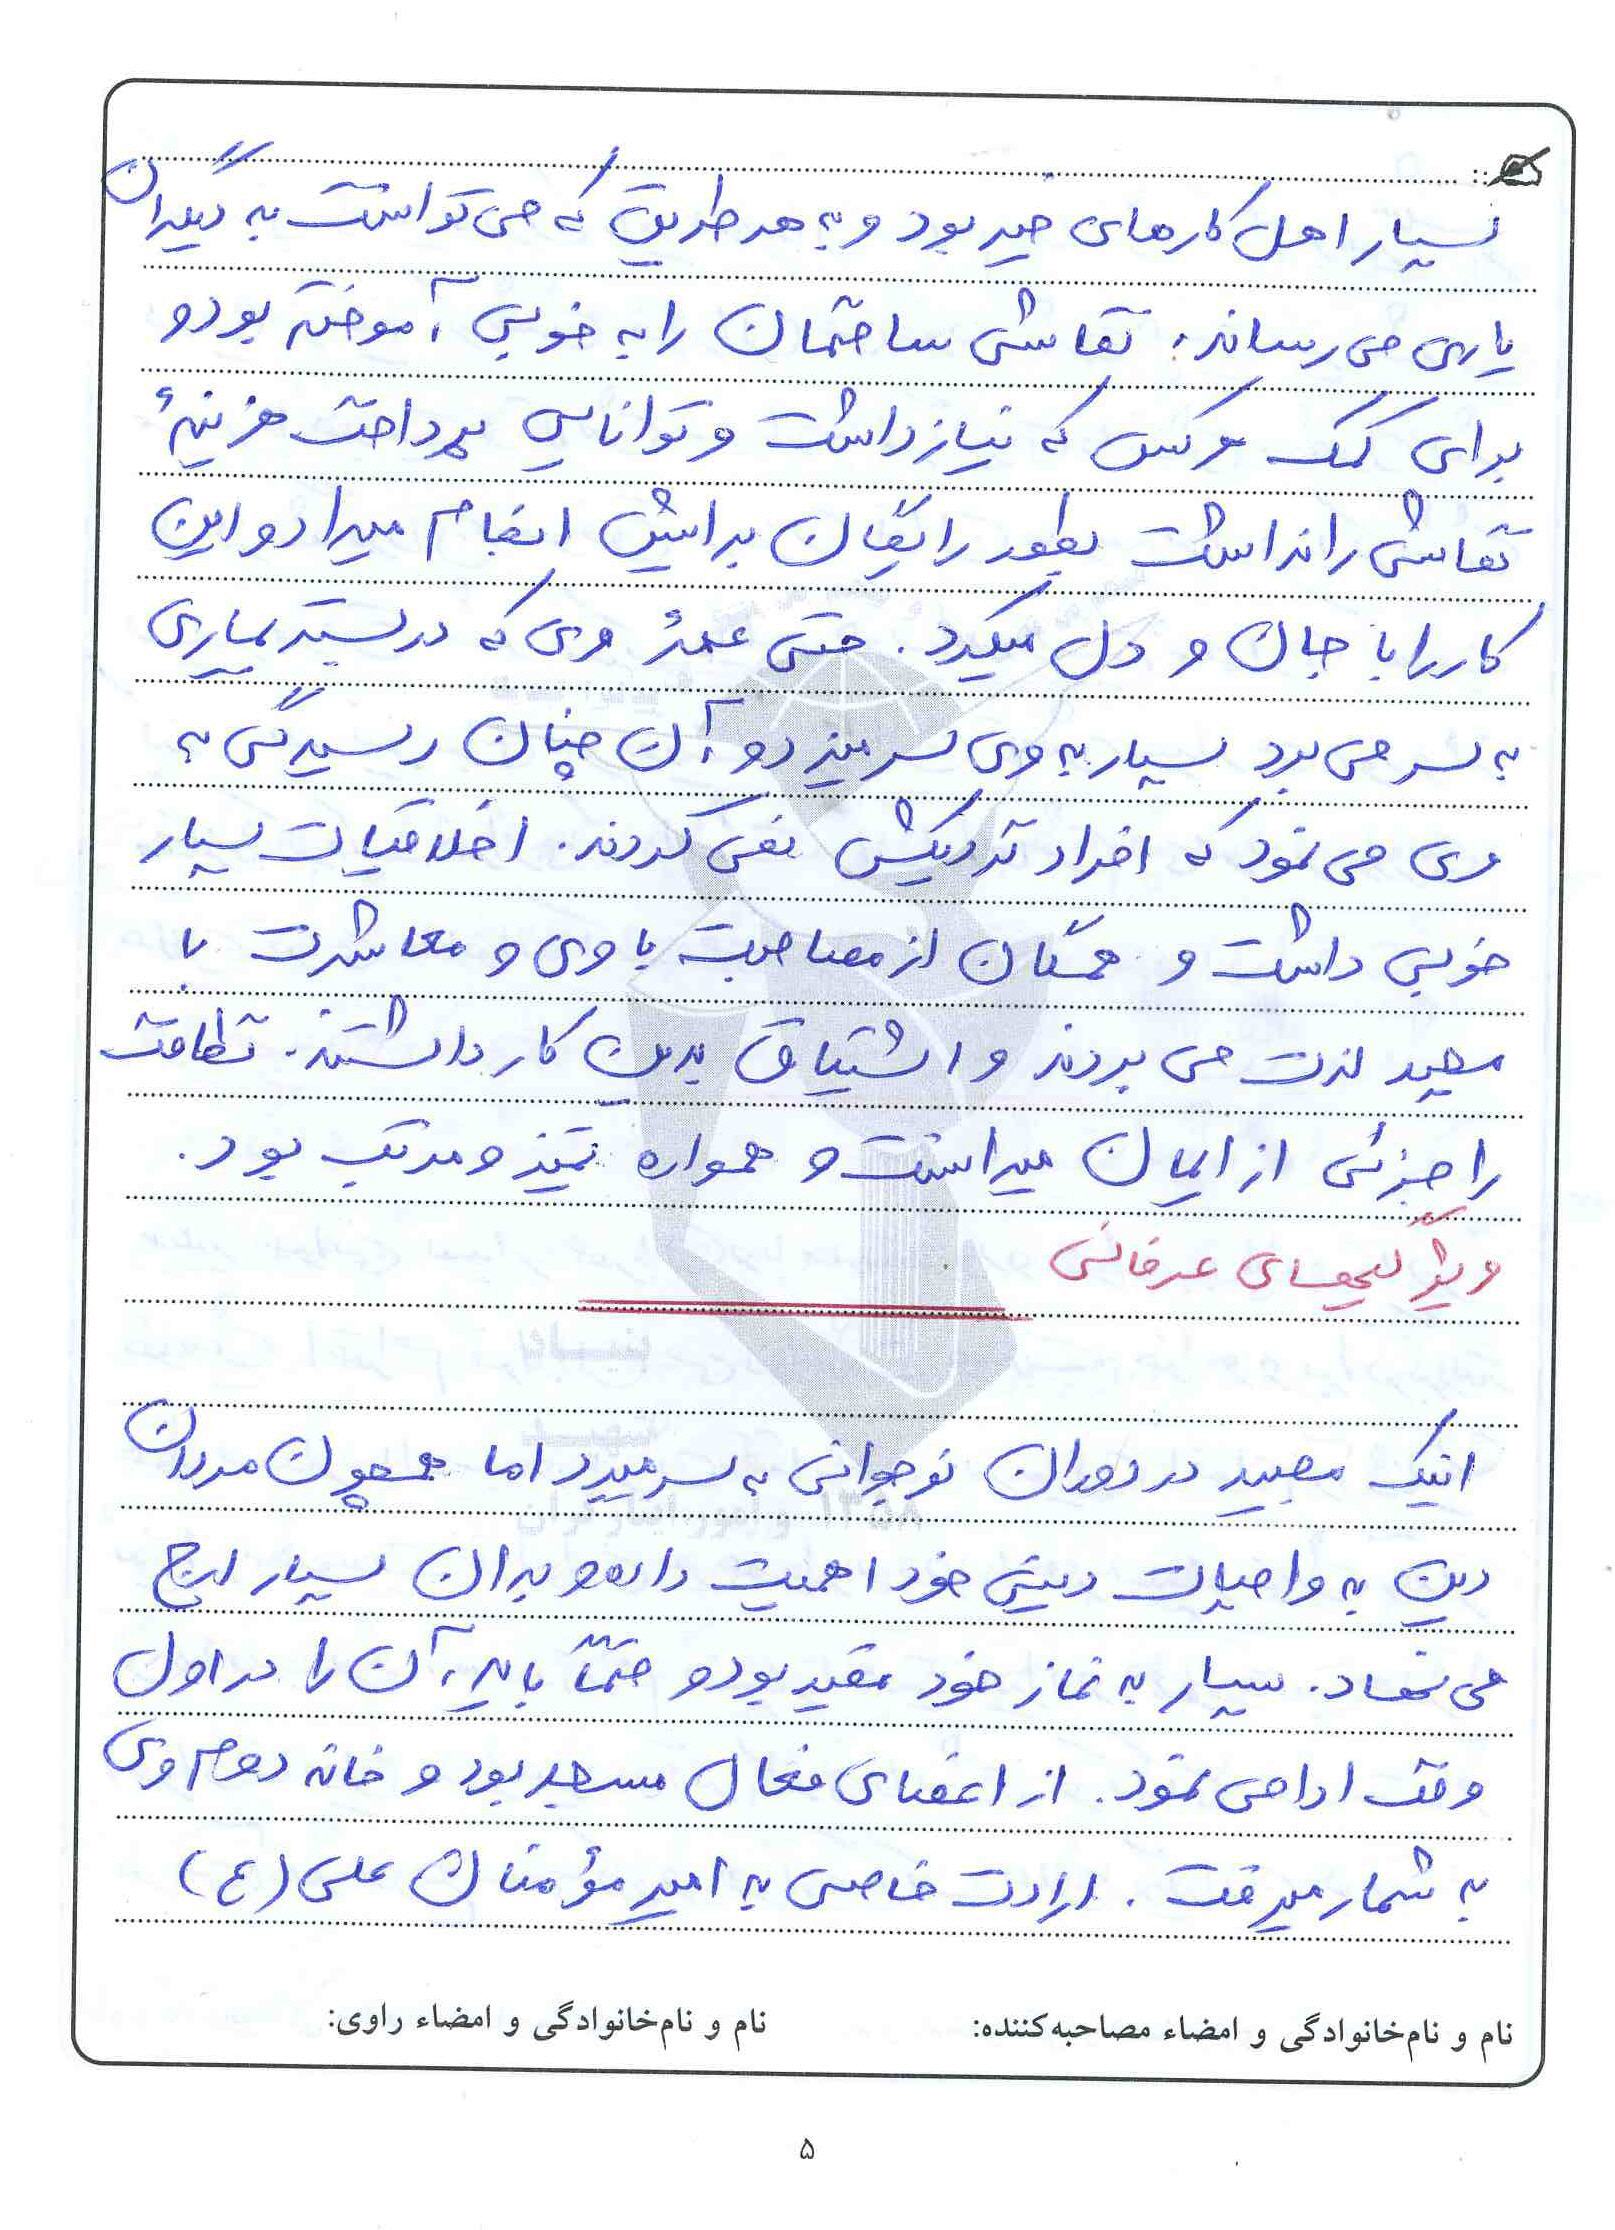 بسیار اهل کارهای خیر بود و به هر طریق که می توانست به دیگران
یاری می رساند. نقاشی ساختمان را به خوبی آموخته بود و
برای کمک هرکس که نیاز داشت و توانایی پرداخت هزینهٔ
نقاشی را نداشت بطور رایگان برایش انجام میداد و این
کار را با جان و دل میکرد. حتی عمهٔ وی که در بستر بیماری
به سر می برد بسیار به وی سر میزد و آن چنان رسیدگی به
وی می نمود که افراد نزدیکش نمی کردند. اخلاقیات بسیار
خوبی داشت و همگان از مصاحبت با وی و معاشرت با
مجید لذت می بردند و اشتیاق بدین کار داشتند. نظافت
را جزئی از ایمان میدانست و همواره تمیز و مرتب بود.
ویژگیهای عرفانی
اینک مجید در دوران نوجوانی به سر میبرد اما همچون مردان
دین به واجبات دینی خود اهمیت داده و بدان بسیار ارج
می نهاد. بسیار به نماز خود مقید بود و حتماً باید آن را در اول
وقت ادا می نمود. از اعضای فعال مسجد بود و خانه دوم وی
به شمار میرفت. ارادت خاصی به امیر مؤمنان علی (ع)
نام و نام‌خانوادگی و امضاء مصاحبه‌کننده: نام و نام‌خانوادگی و امضاء راوی:
۵